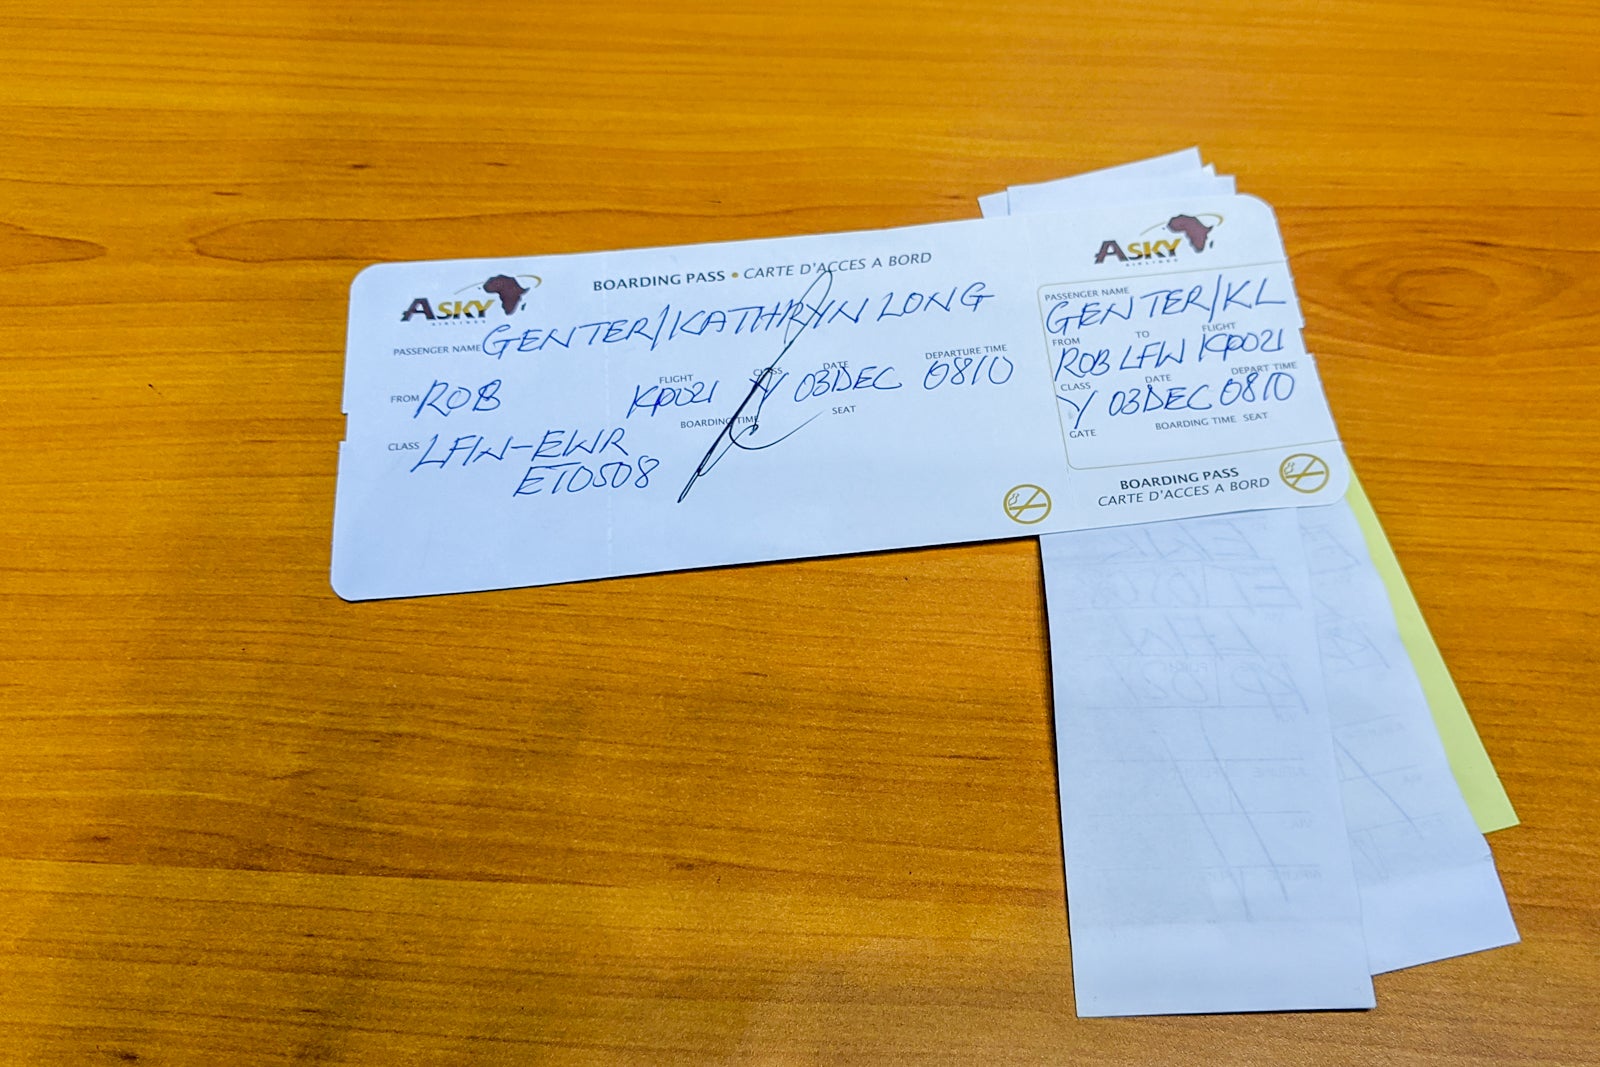 ASKY
AIRLINES
BOARDING PASS • CARTE D'ACCES A BORD
PASSENGER NAME GENTER/KATHRYN LONG
FLIGHT CLASS DATE DEPARTURE TIME
FROM ROB KP021 Y 03DEC 0810
BOARDING TIME SEAT
CLASS LFW-EWR
ET0508
ASKY
AIRLINES
PASSENGER NAME
GENTER/KL
FROM TO FLIGHT
ROB LFW KP021
CLASS DATE DEPART TIME
Y 03DEC 0810
GATE BOARDING TIME SEAT
BOARDING PASS
CARTE D'ACCES A BORD